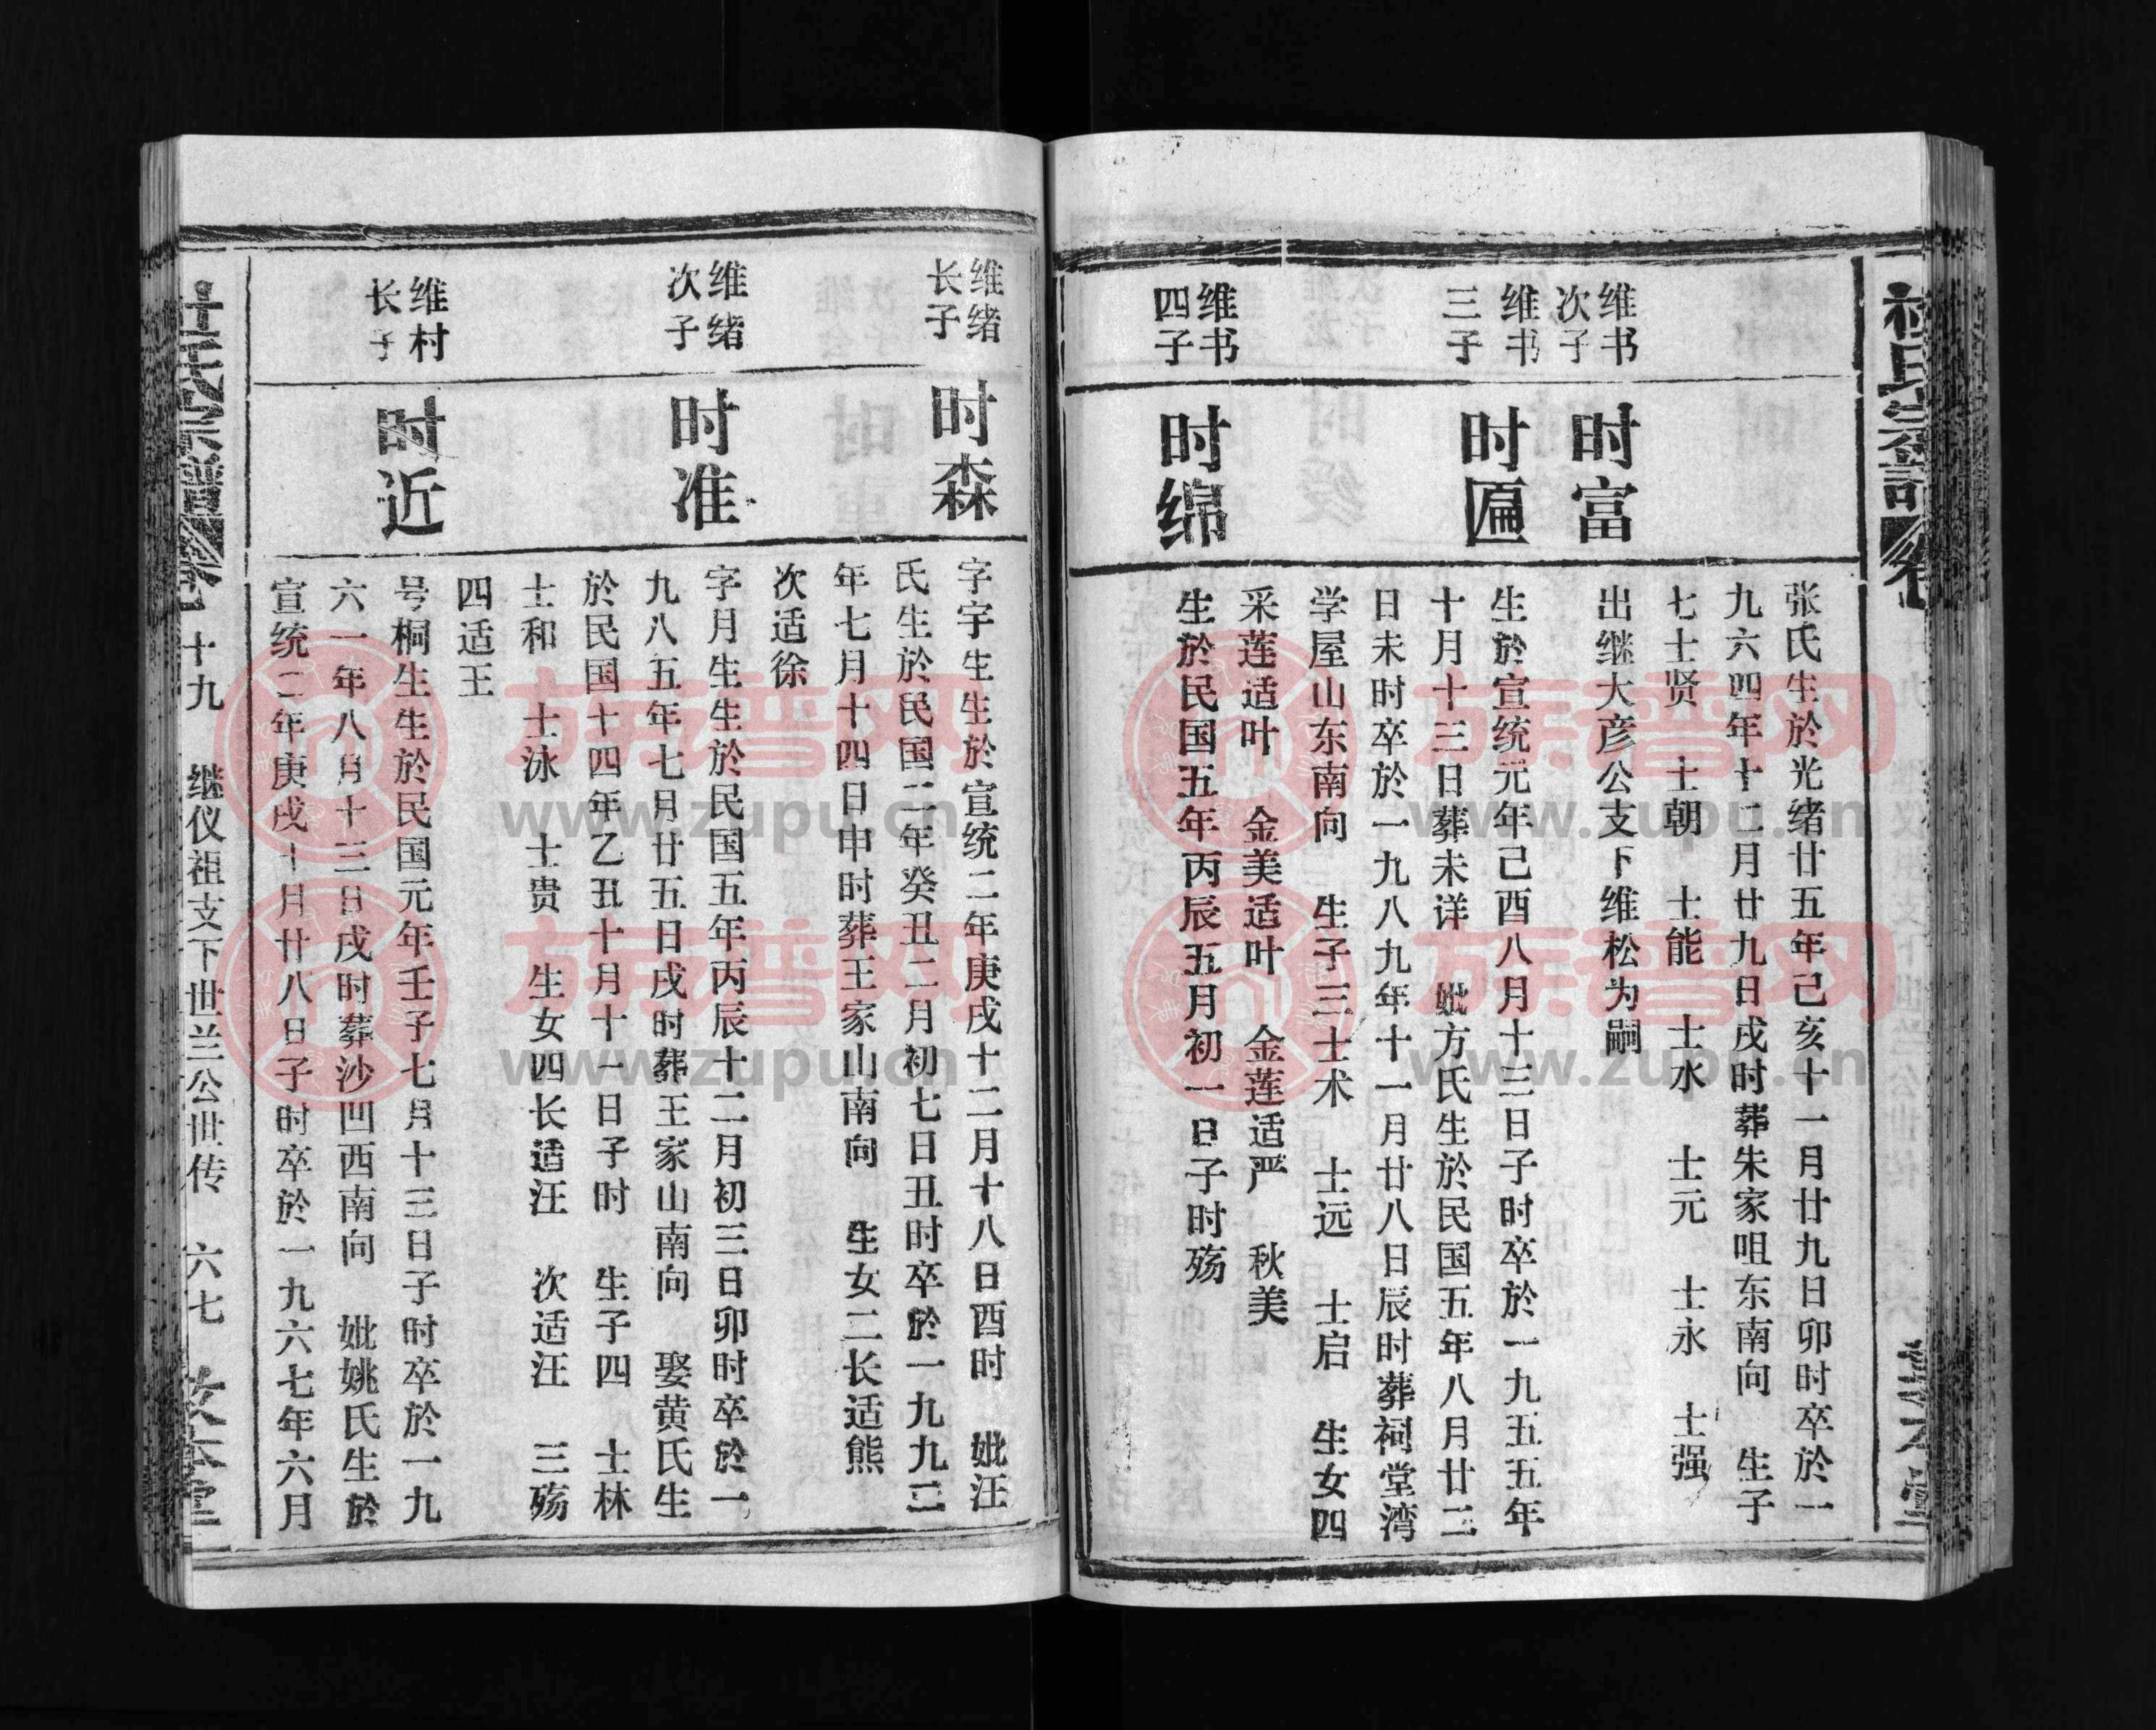 张氏生於光绪廿五年己亥十一月廿九日卯时卒於一
九六四年十二月廿九日戌时葬朱家咀东南向 生子
七士贤 士朝 士能 士水 士元 士永 士强
维书
次子
时富
出继大彦公支下维松为嗣
维书
三子
时匾
生於宣统元年己酉八月十三日子时卒於一九五五年
十月十三日葬未详 妣方氏生於民国五年八月廿二
日未时卒於一九八九年十一月廿八日辰时葬祠堂湾
学屋山东南向 生子三士术 士远 士启 生女四
采莲适叶 金美适叶 金莲适严 秋美
维书
四子
时绵
生於民国五年丙辰五月初一日子时殇
维绪
长子
时森
字宇生生於宣统二年庚戌十二月十八日酉时 妣汪
氏生於民国二年癸丑二月初七日丑时卒於一九九二
年七月十四日申时葬王家山南向 生女二长适熊
次适徐
维绪
次子
时准
字月生生於民国五年丙辰十二月初三日卯时卒於一
九八五年七月廿五日戌时葬王家山南向 娶黄氏生
於民国十四年乙丑十月十一日子时 生子四 士林
士和 士泳 士贵 生女四长适汪 次适汪 三殇
四适王
维村
长子
时近
号桐生生於民国元年壬子七月十三日子时卒於一九
六一年八月十三日戌时葬沙凹西南向 妣姚氏生於
宣统二年庚戌十月廿八日子时卒於一九六七年六月
杜氏宗谱 卷十九 继仪祖支下世兰公世传 六七
族谱网
www.zupu.cn
族谱网
www.zupu.cn
族谱网
www.zupu.cn
族谱网
www.zupu.cn